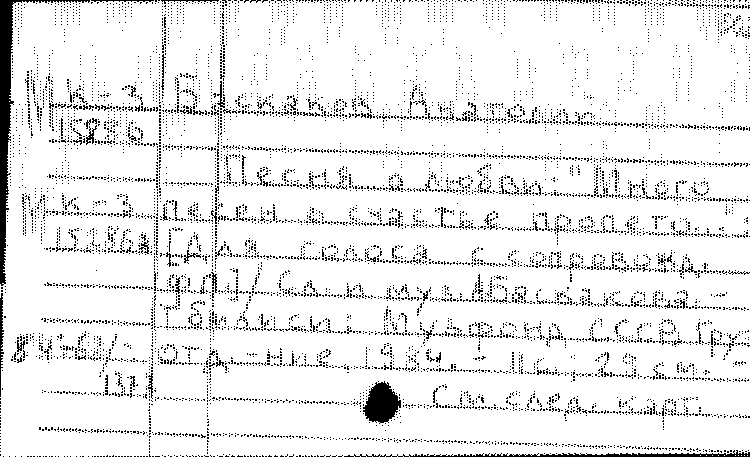 М к-3 Баскаков Анатолий
15286
Песня о любви: "Много
М к-3 песен о счастье пропето..."
15286а [Для голоса с сопровожд.
фп.] / Сл. и муз. А Баскакова. -
Тбилиси: Музфонд СССР Груз.
84- отд.-ние, 1984. - 11 с.; 29 см. -
См. след. карт.